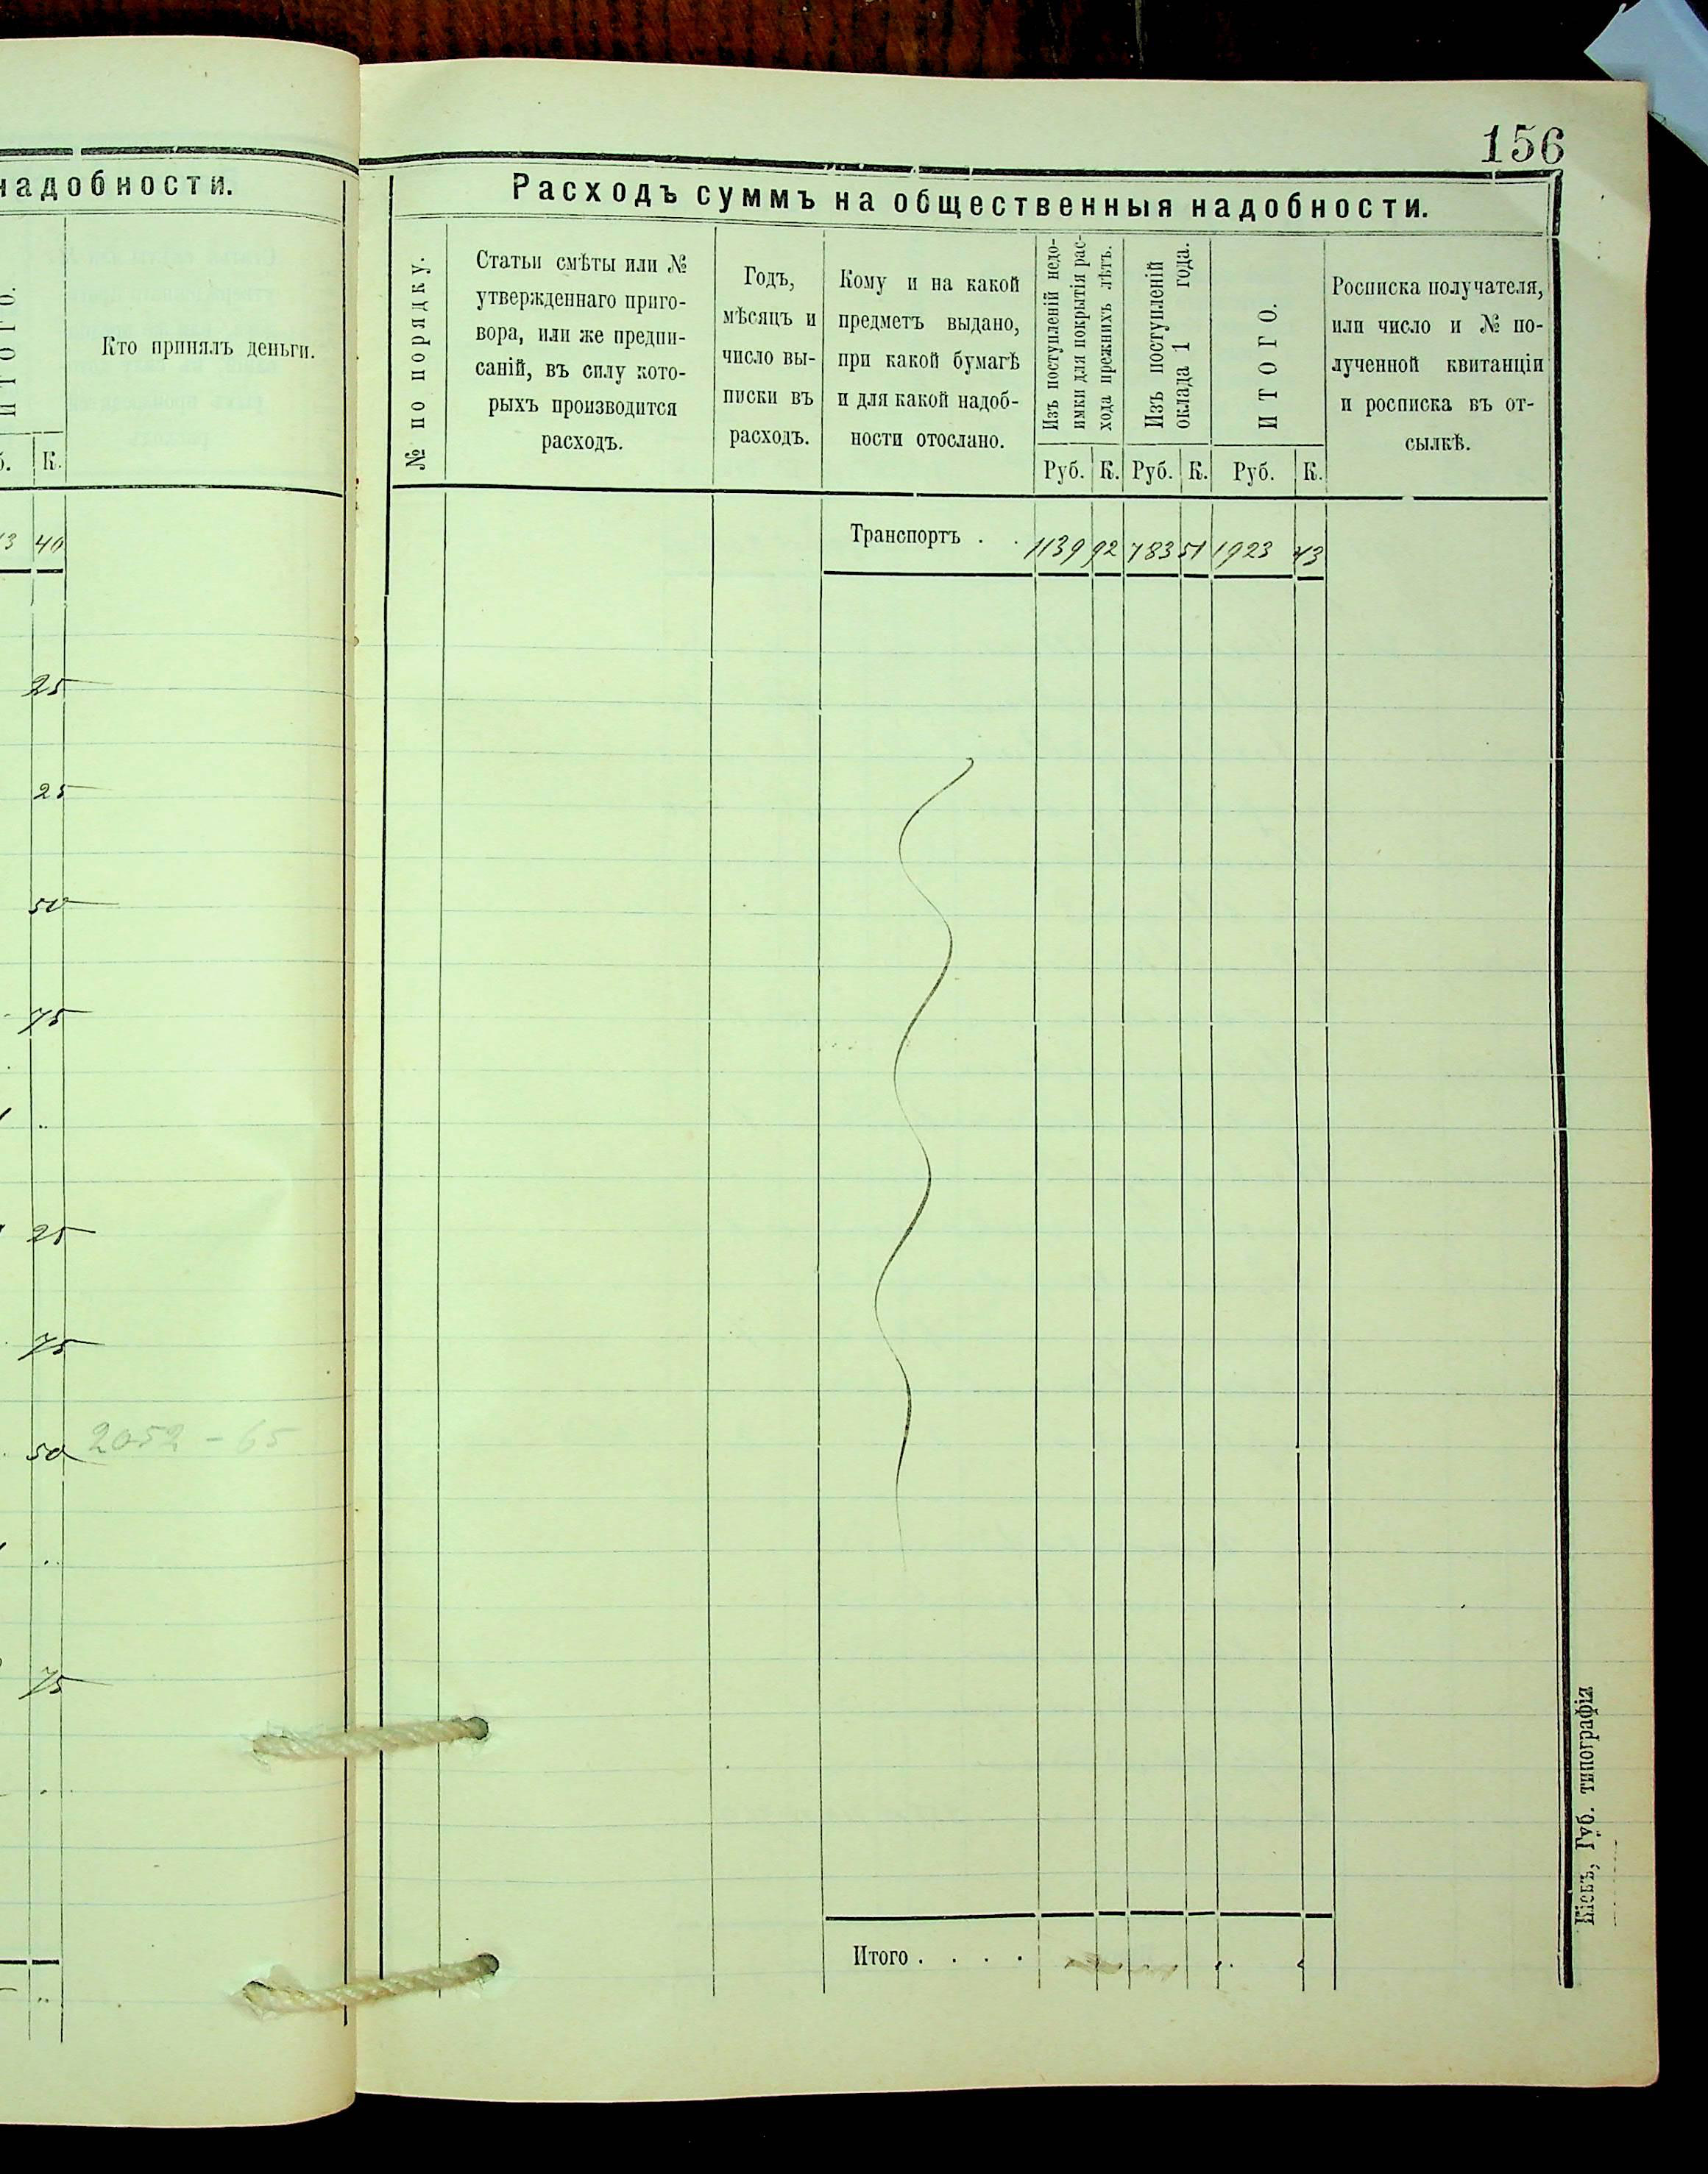 надобности.
И Т О Г О.
Кто принялъ деньги.
К.
40
25
25
50
75
25
75
50
2052 - 65
75
156
Расходъ суммъ на общественныя надобности.
№ по порядку.
Статьи смѣты или №
утвержденнаго приго-
вора, или же предпи-
саній, въ силу кото-
рыхъ производится
расходъ.
Годъ,
мѣсяцъ и
число вы-
писки въ
расходъ.
Кому и на какой
предметъ выдано,
при какой бумагѣ
и для какой надоб-
ности отослано.
Изъ поступленій недо-
имки для покрытія рас-
хода прежнихъ лѣтъ.
Изъ поступленій
оклада 1 года.
И Т О Г О.
Росписка получателя,
или число и № по-
лученной квитанціи
и росписка въ от-
сылкѣ.
Руб. К. Руб. К. Руб. К.
Транспортъ . . 1139 92 783 51 1923 43
Итого . . . .
Кіевъ, Губ. типографія